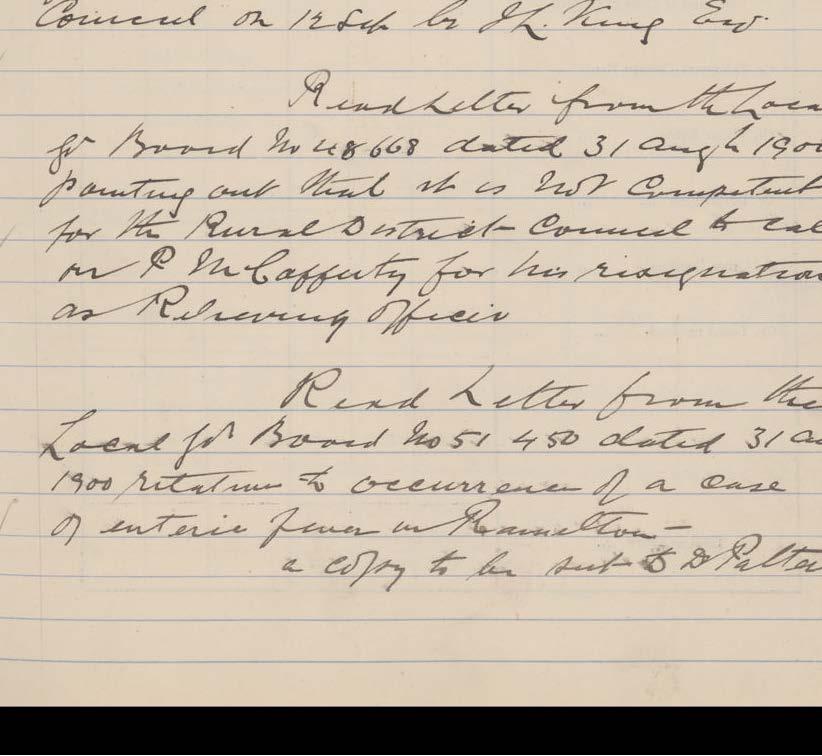 Council on 12 Sep by J L. King Esq.
Read Letter from the Loca
Gt Board No 48668 dated 31 Augt 190
pointing out that it is not competent
for the Rural District Council to cal
on P McCafferty for his resignation
as Relieving Officer
Read Letter from the
Local Gt Board No 51 450 dated 31 Au
1900 relative to occurrence of a case
of enteric fever in Ramelton -
a copy to be sent to Dr Patte